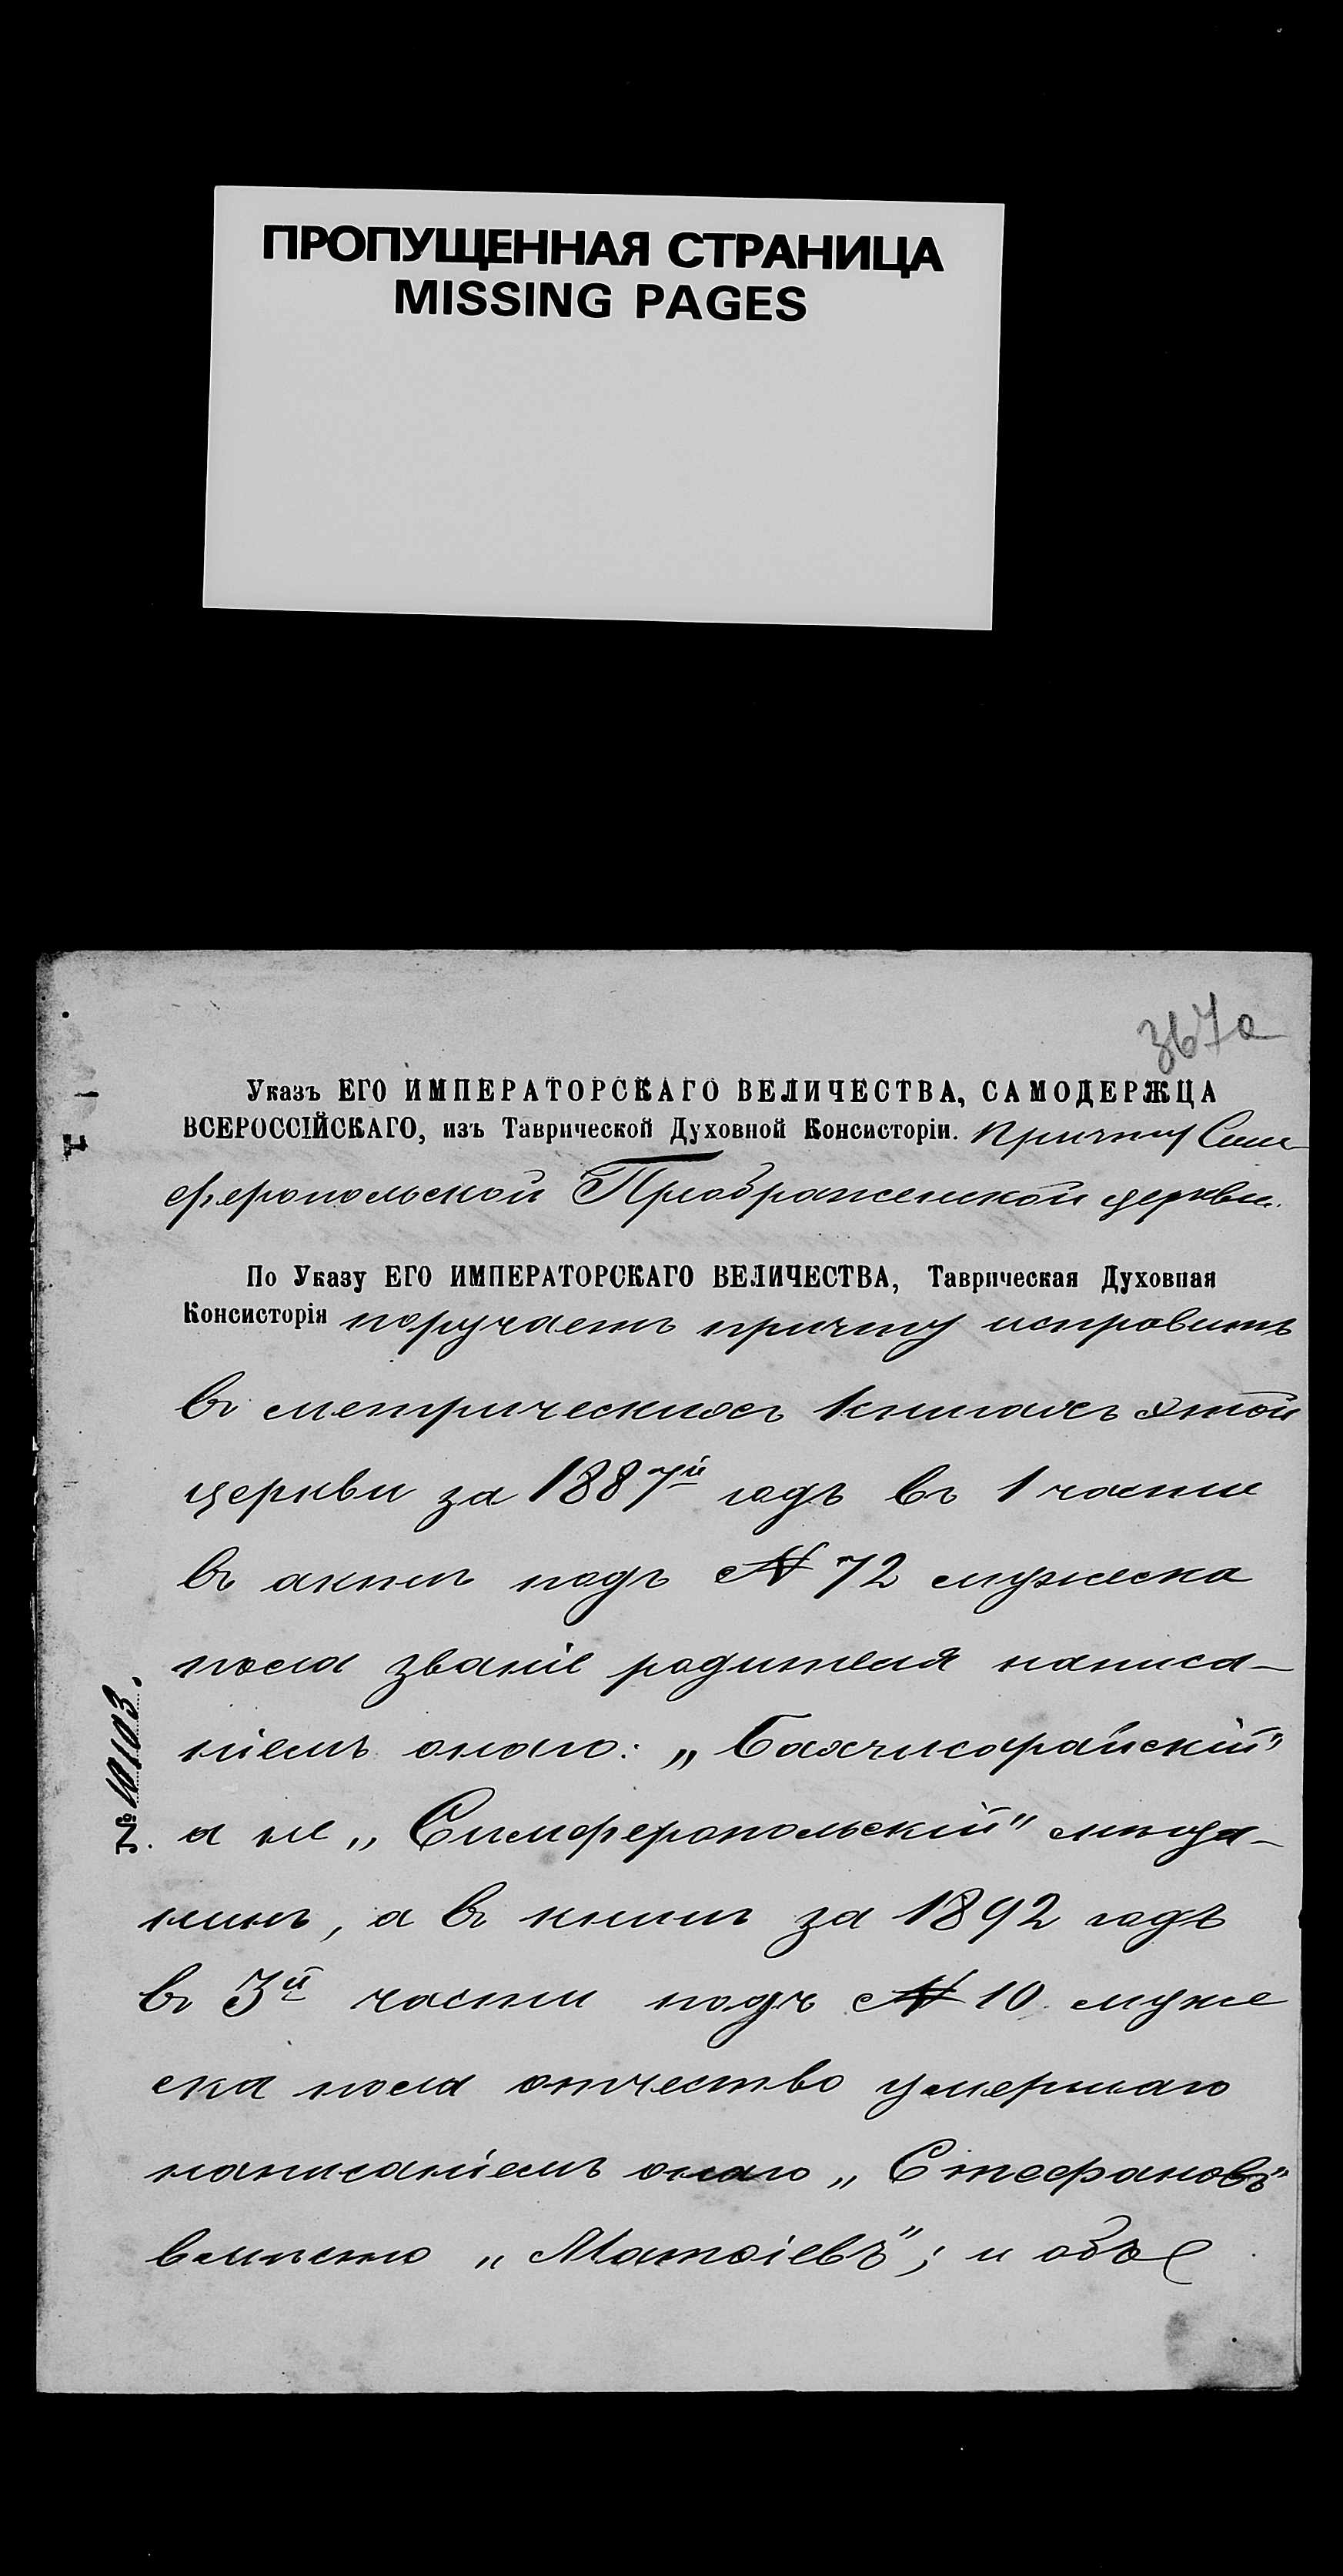 ПРОПУЩЕННАЯ СТРАНИЦА
MISSING PAGES
367а
Указъ ЕГО ИМПЕРАТОРСКАГО ВЕЛИЧЕСТВА, САМОДЕРЖЦА
ВСЕРОССІЙСКАГО, изъ Таврической Духовной Консисторіи. Причту Сим-
феропольской Преображенской церкви.
По Указу ЕГО ИМПЕРАТОРСКАГО ВЕЛИЧЕСТВА, Таврическая Духовная
Консисторія поручаетъ причту исправить
въ метрическихъ книгахъ этой
церкви за 1887й годъ въ 1 части
въ актѣ подъ № 72 мужеска
пола званіе родителя написа-
ніемъ онаго: „Бахчисарайскій"
а не „Симферопольскій" мѣща-
нинъ, а въ книгѣ за 1892 годъ
въ 3й части подъ № 10 муже
ска пола отчество умершаго
написаніемъ онаго „Стефановъ"
вмѣсто „Матѳіевъ"; и объ
№ 10103.